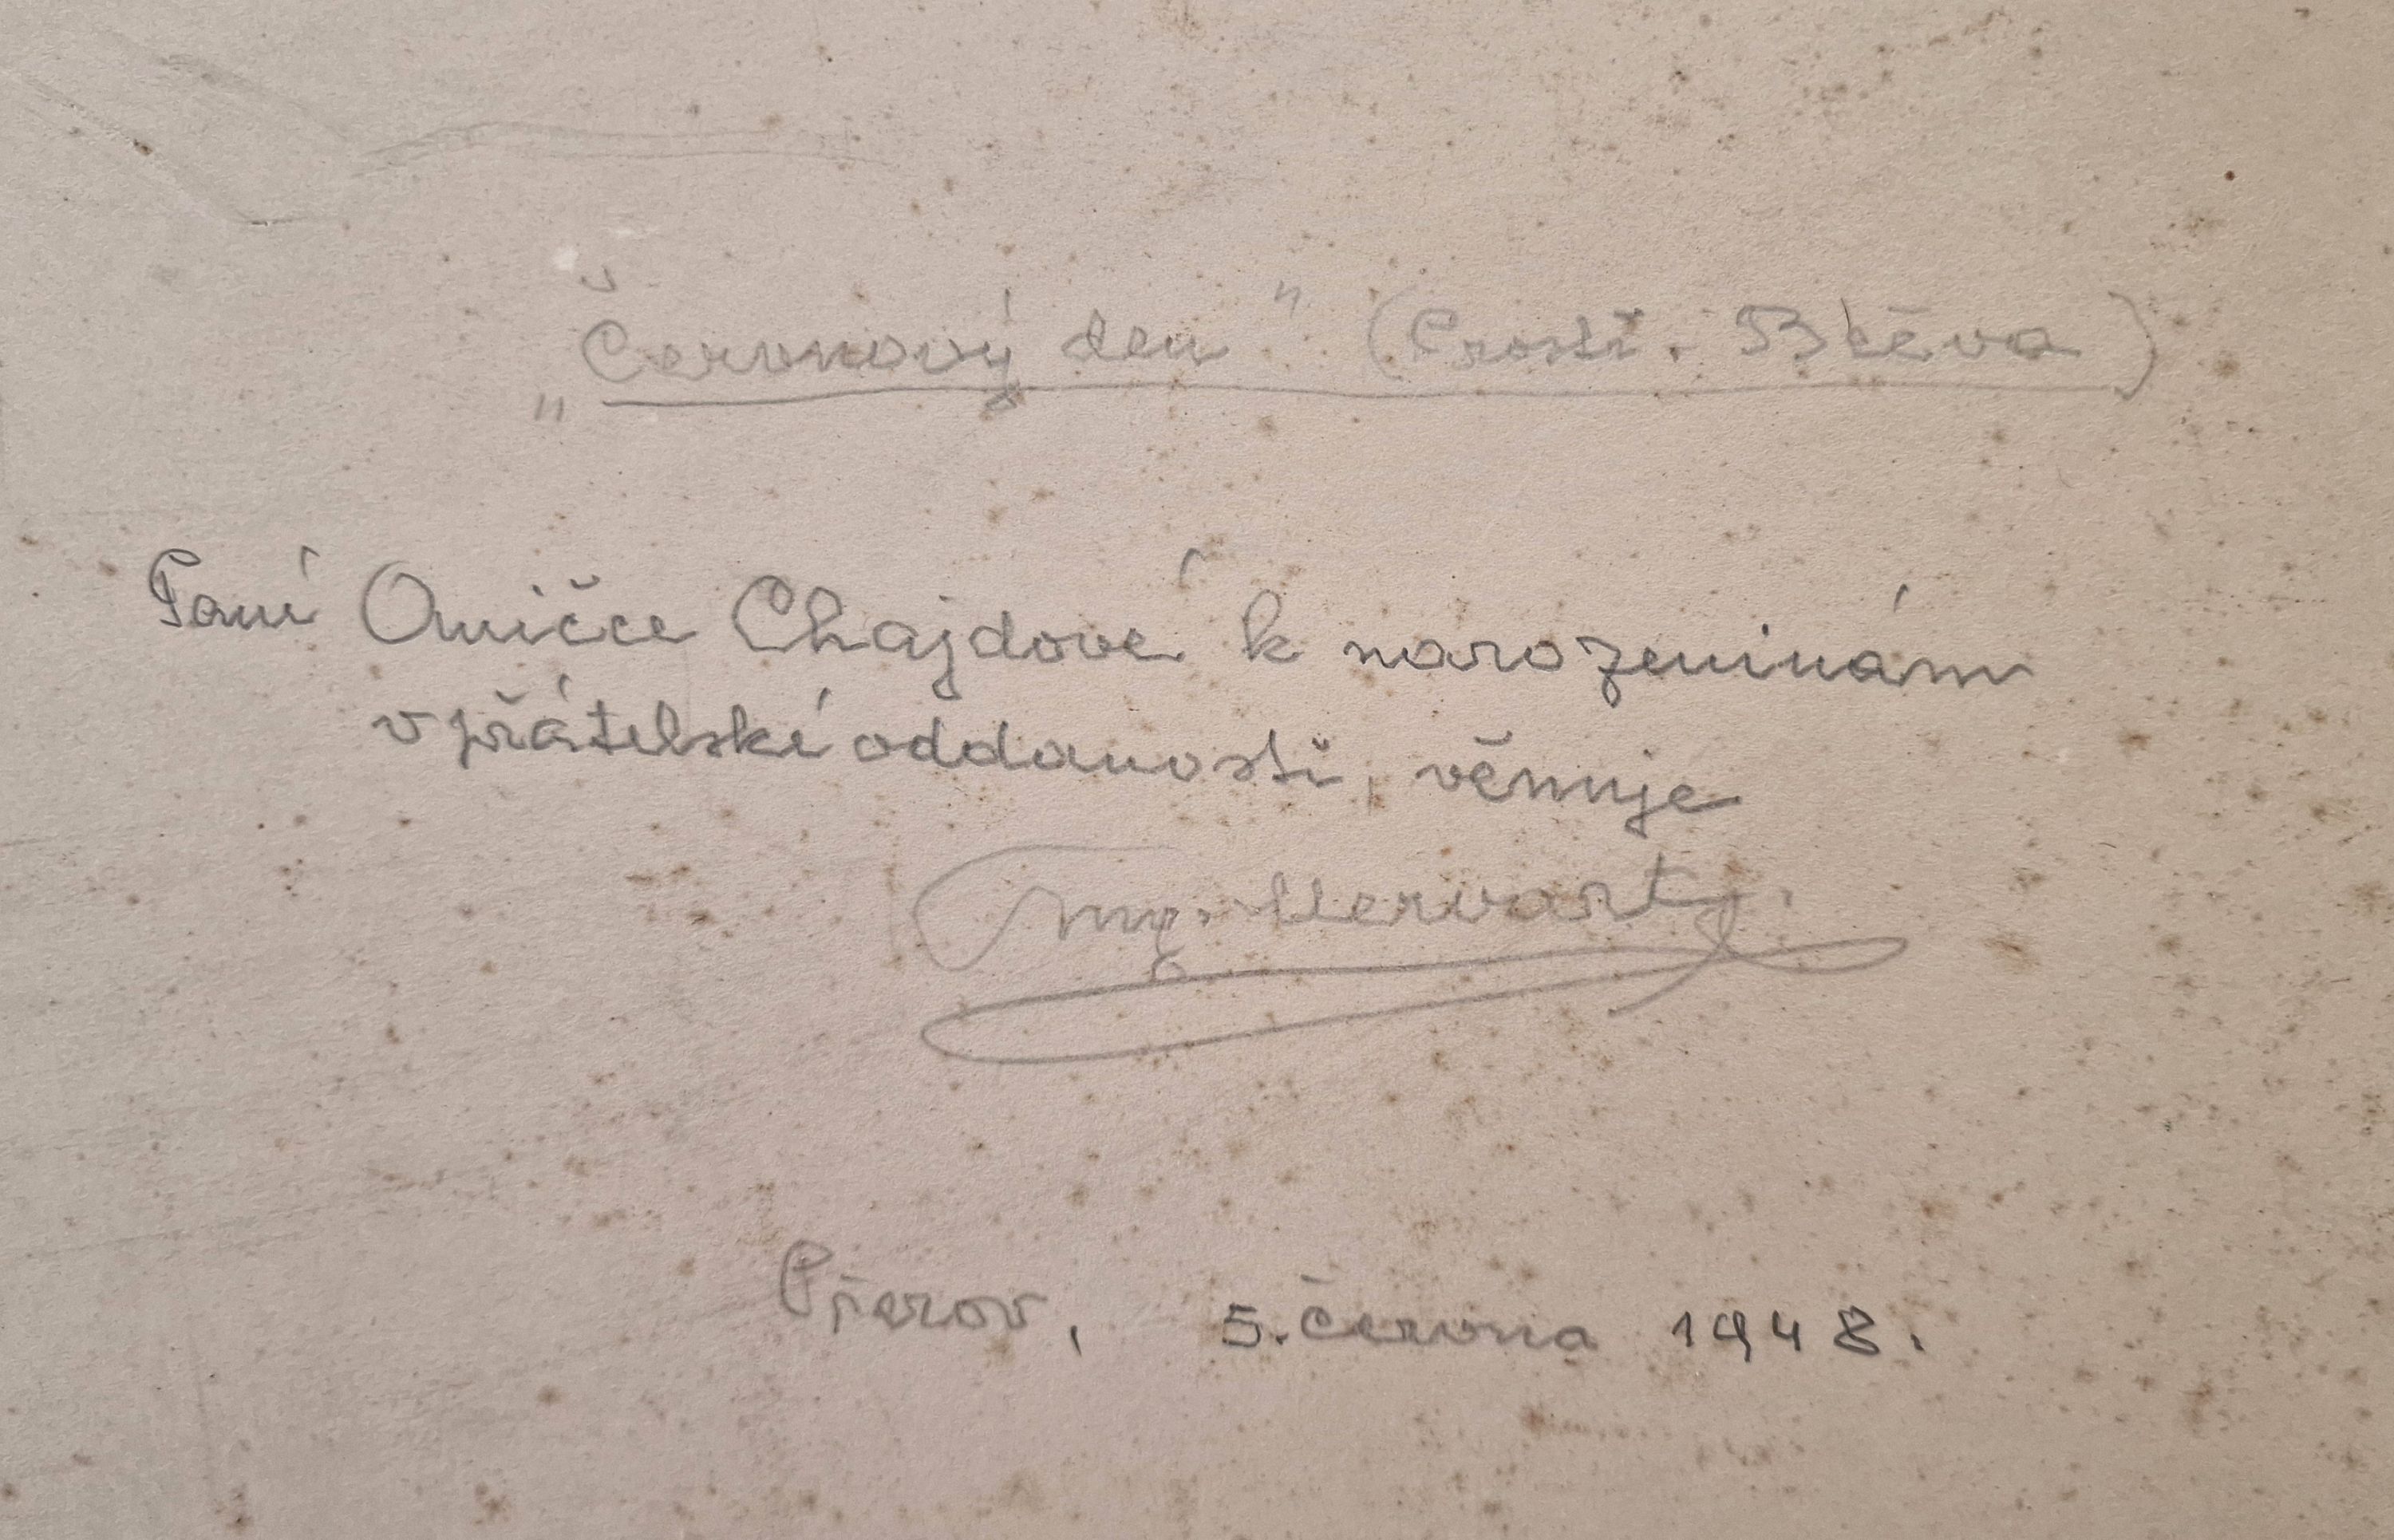 „Červnový den" (Prostř. Bečva)
Paní Aničce Chajdové k narozeninám
v přátelské oddanosti, věnuje
Ing. Hervert
Přerov, 5. června 1948.